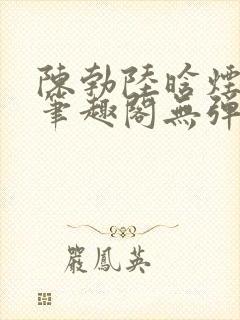 陳勃陸晗煙
筆趣閣無彈
嚴鳳英